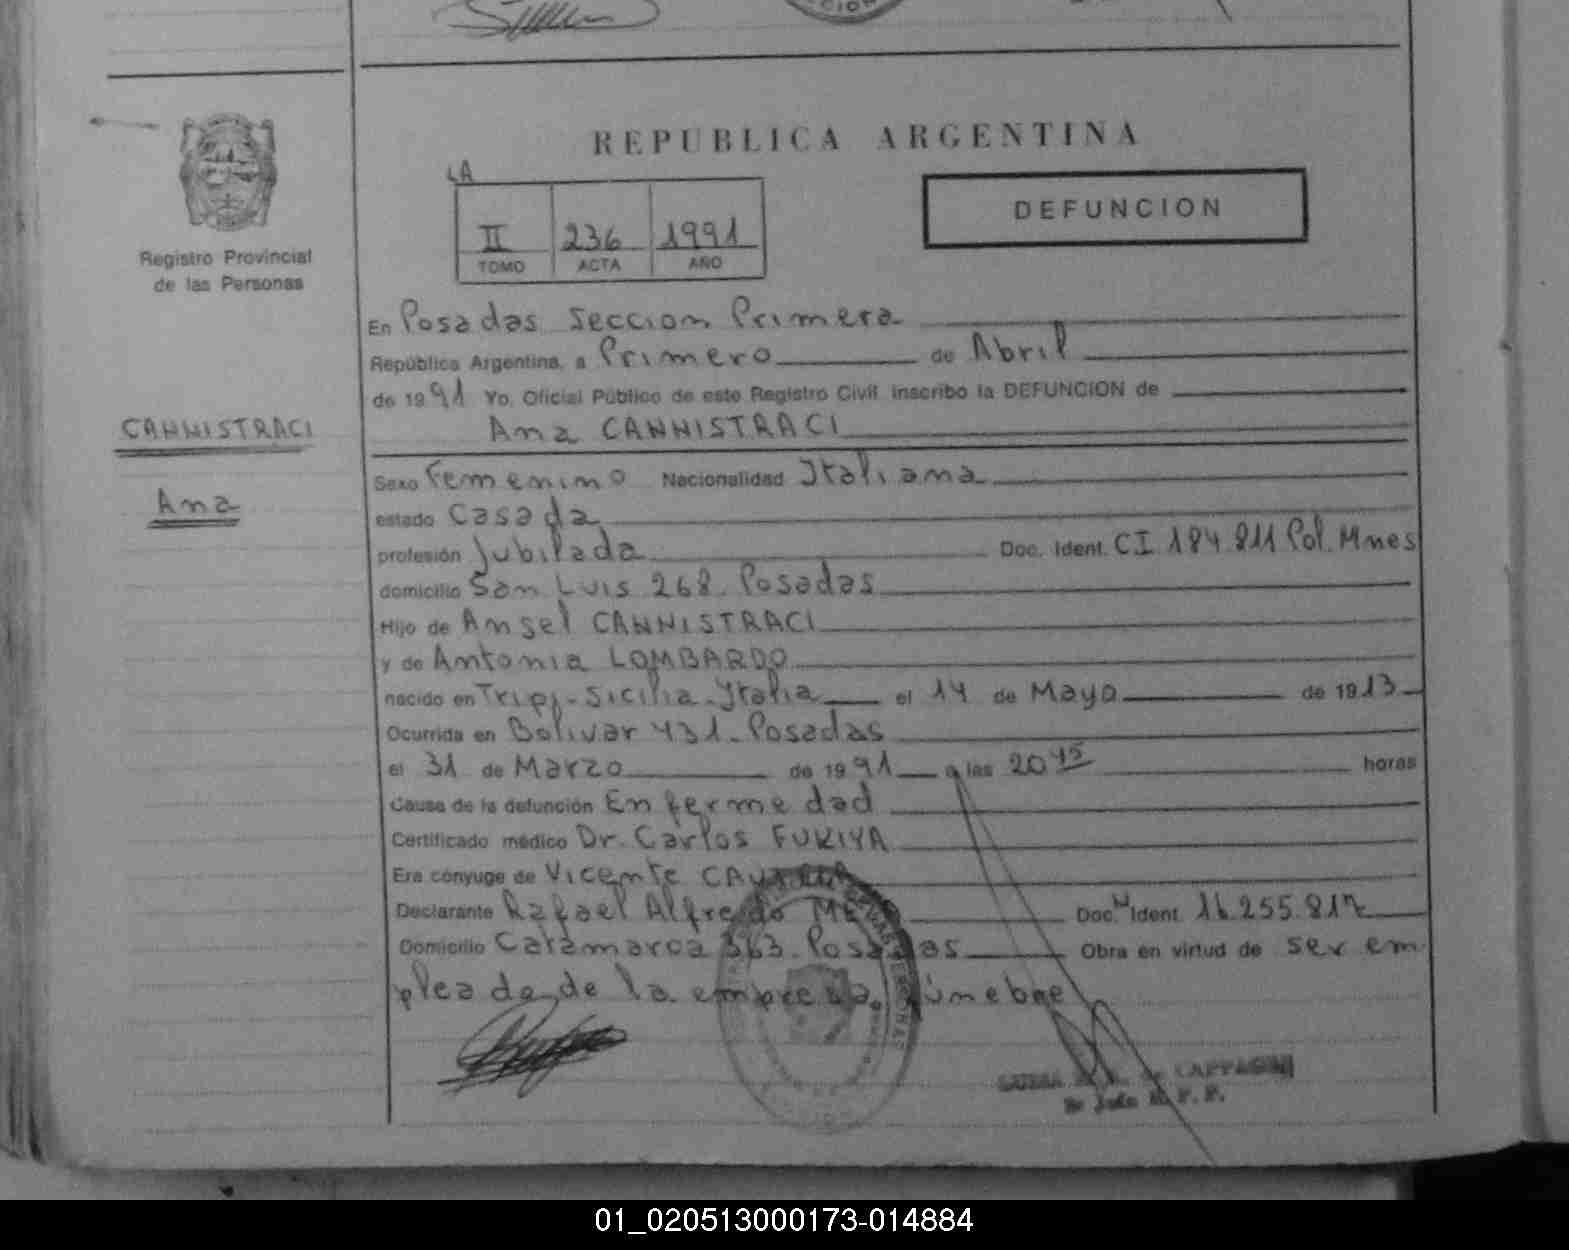 REPUBLICA ARGENTINA
LA
II 236 1991
TOMO ACTA AÑO
DEFUNCION
Registro Provincial
de las Personas
CANNISTRACI
Ana
En Posadas Seccion Primera
República Argentina, a Primero de Abril
de 1991 Yo, Oficial Público de este Registro Civil inscribo la DEFUNCION de
Ana CANNISTRACI
Sexo Femenino Nacionalidad Italiana
estado Casada
profesión Jubilada Doc. Ident. CI 184.811 Pol. Mnes
domicilio San Luis 268. Posadas
Hijo de Angel CANNISTRACI
y de Antonia LOMBARDO
nacido en Tripi-Sicilia-Italia el 14 de Mayo de 1913
Ocurrida en Bolivar 431-Posadas
el 31 de Marzo de 1991 a las 20 45 horas
Causa de la defunción Enfermedad
Certificado médico Dr. Carlos FUKIYA
Era cónyuge de Vicente
Declarante Rafael Alfredo Doc. N Ident. 16.255.817
Domicilio Catamarca 363. Posadas Obra en virtud de ser em
pleado de la empresa fúnebre
01_020513000173-014884